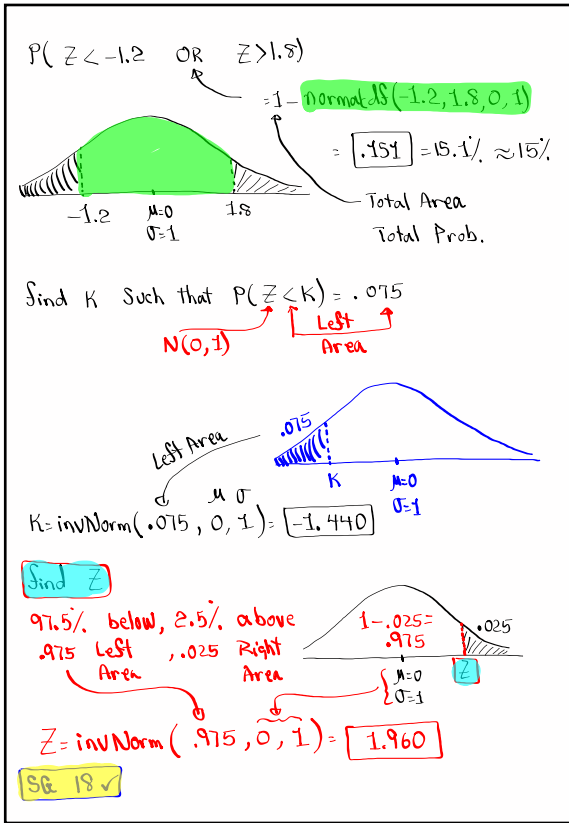 P( Z < -1.2 OR Z > 1.8)
= 1 - normalcdf(-1.2, 1.8, 0, 1)
= .151 = 15.1% ≈ 15%
-1.2 μ=0 1.8
σ=1
Total Area
Total Prob.
find K Such that P(Z < K) = .075
N(0,1)
Left
Area
.075
Left Area
K μ=0
σ=1
μ σ
K = invNorm(.075, 0, 1) = -1.440
find Z
97.5% below, 2.5% above
.975 Left , .025 Right
Area Area
1-.025=
.975
.025
Z
μ=0
σ=1
Z = invNorm( .975, 0, 1) = 1.960
SG 18 ✓